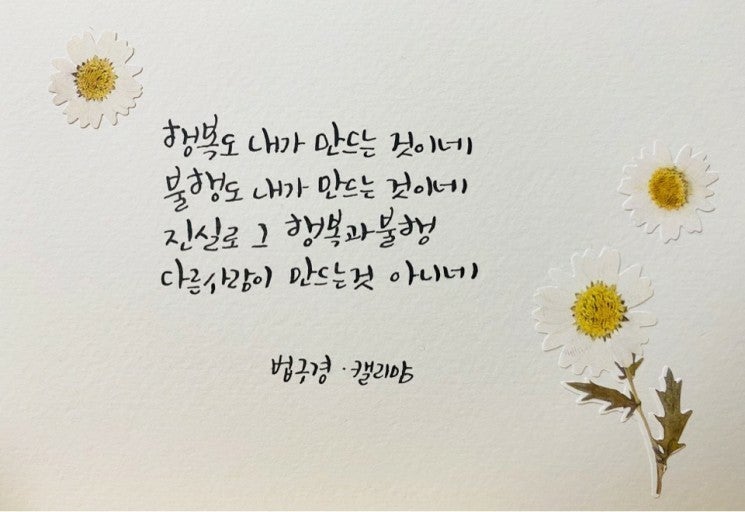 행복도 내가 만드는 것이네
불행도 내가 만드는 것이네
진실로 그 행복과 불행
다른사람이 만드는것 아니네
법구경 · 캘리먕